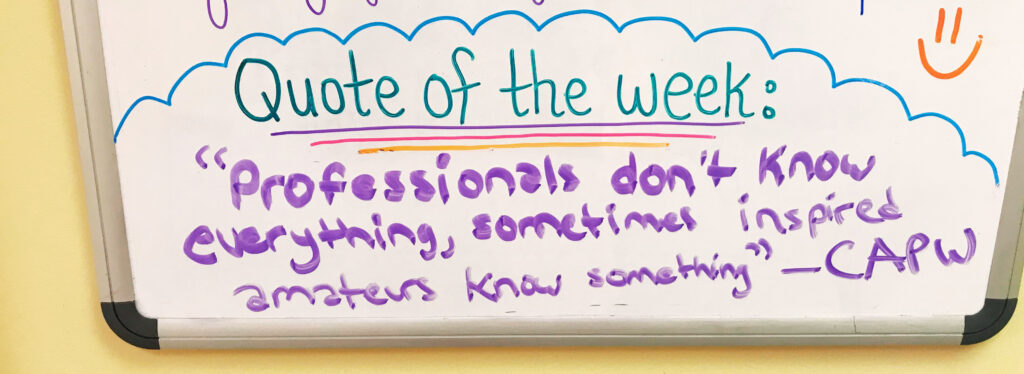 Quote of the week:
“Professionals don't know
everything, sometimes inspired
amateurs know something” – CAPW